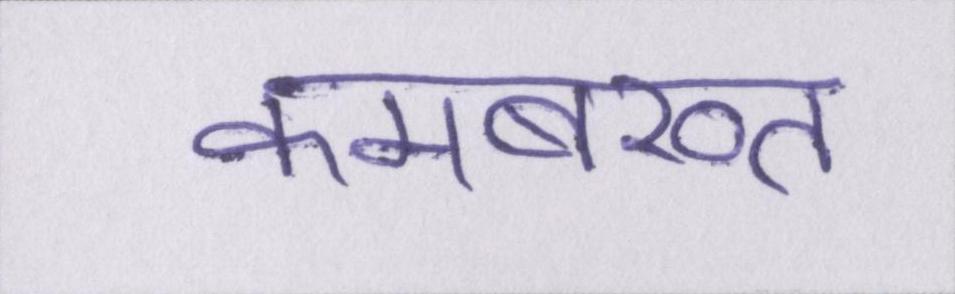 कमबख्त